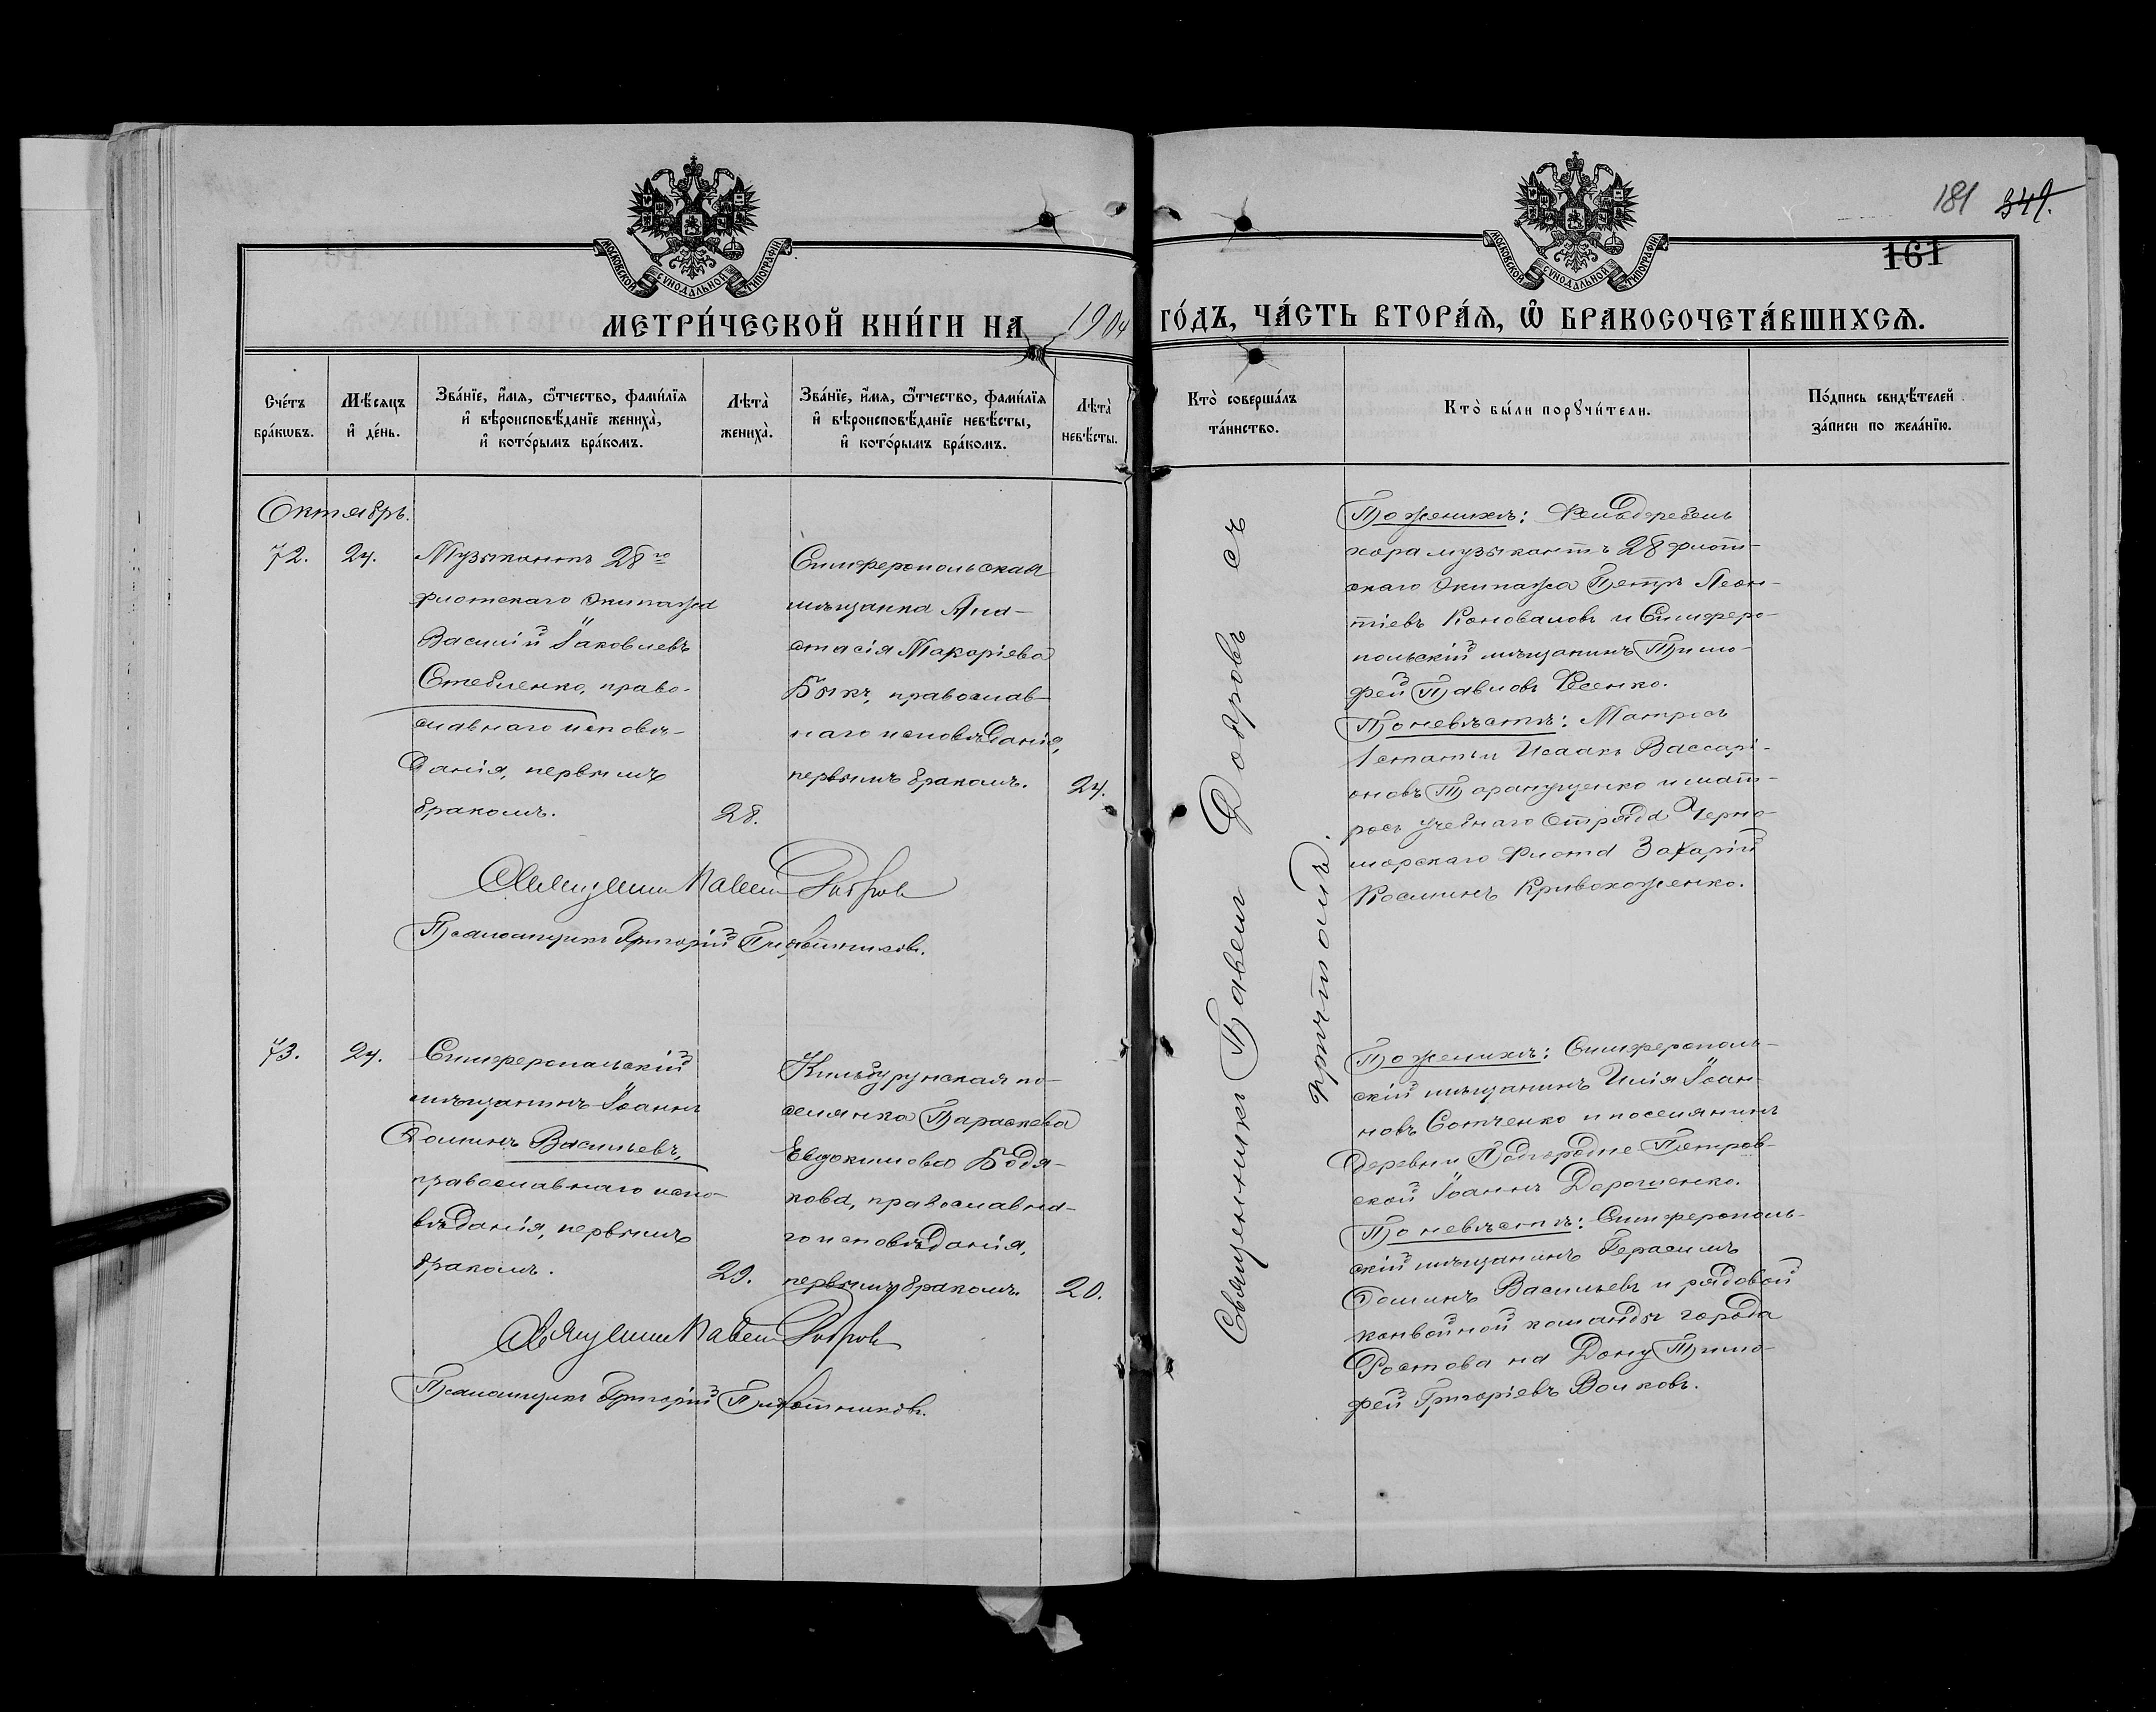 181 349.
161
МОСКОВСКОЙ СУНОДАЛЬНОЙ ТИПОГРАФІИ
МОСКОВСКОЙ СУНОДАЛЬНОЙ ТИПОГРАФІИ
МЕТРИ́ЧЕСКОЙ КНИ́ГИ НА 1904 ГО́ДЪ, ЧА́СТЬ ВТОРА́Ѧ, Ѡ҆ БРАКОСОЧЕТА́ВШИХСѦ.
Сче́тъ
бра́кωвъ.
Мѣ́сяцъ
и҆ де́нь.
Зва́нїе, и҆́мя, ѻ҆́тчество, фами́лїя
и҆ вѣроисповѣ́данїе жениха̀,
и҆ кото́рымъ бра́комъ.
Лѣта̀
жениха̀.
Зва́нїе, и҆́мя, ѻ҆́тчество, фами́лїя
и҆ вѣроисповѣ́данїе невѣ́сты,
и҆ кото́рымъ бра́комъ.
Лѣта̀
невѣ́сты.
Кто̀ соверша́лъ
та́инство.
Кто̀ бы́ли порꙋчи́тели.
По́дпись свидѣ́телей
за́писи по жела́нїю.
Октябрь.
72.
24.
Музыкантъ 28го
флотскаго Экипажа
Василій Іаковлевъ
Стебленко, право-
славнаго исповѣ-
данія, первымъ
бракомъ.
28.
Симферопольская
мѣщанка Ана-
стасія Макаріева
Быкъ, православ-
наго исповѣданія,
первымъ бракомъ.
24.
Священникъ Павелъ Добровъ
Псаломщикъ Григорій Плотниковъ.
Священникъ Павелъ Добровъ съ
причтомъ.
По женихѣ:
хора музыкантъ 28 флот-
скаго Экипажа Петръ Леон-
тіевъ Коноваловъ и Симферо-
польскій мѣщанинъ Тимо-
фей Павловъ Фесенко.
По невѣстѣ: Матросъ
1 статьи Исаакъ Виссарі-
оновъ Таранущенко и мат-
росъ учебнаго Отряда Черно-
морскаго флота Захарій
Косминъ Кривокоженко.
73.
24.
Симферопольскій
мѣщанинъ Іоаннъ
Доминъ Васильевъ,
православнаго испо-
вѣданія, первымъ
бракомъ.
29.
Кильбурунская по-
селянка Параскева
Евдокимова Бодя-
кова, православна-
го исповѣданія,
первымъ бракомъ.
20.
Священникъ Павелъ Добровъ
Псаломщикъ Григорій Плотниковъ.
По женихѣ: Симферополь-
скій мѣщанинъ Илія Іоан-
новъ Сотченко и поселянинъ
деревни Подгородне Петров-
ской Іоаннъ Дорошенко.
По невѣстѣ: Симферополь-
скій мѣщанинъ Герасимъ
Доминъ Васильевъ и рядовой
конвойной команды города
Ростова на Дону Тимо-
фей Григоріевъ Волковъ.